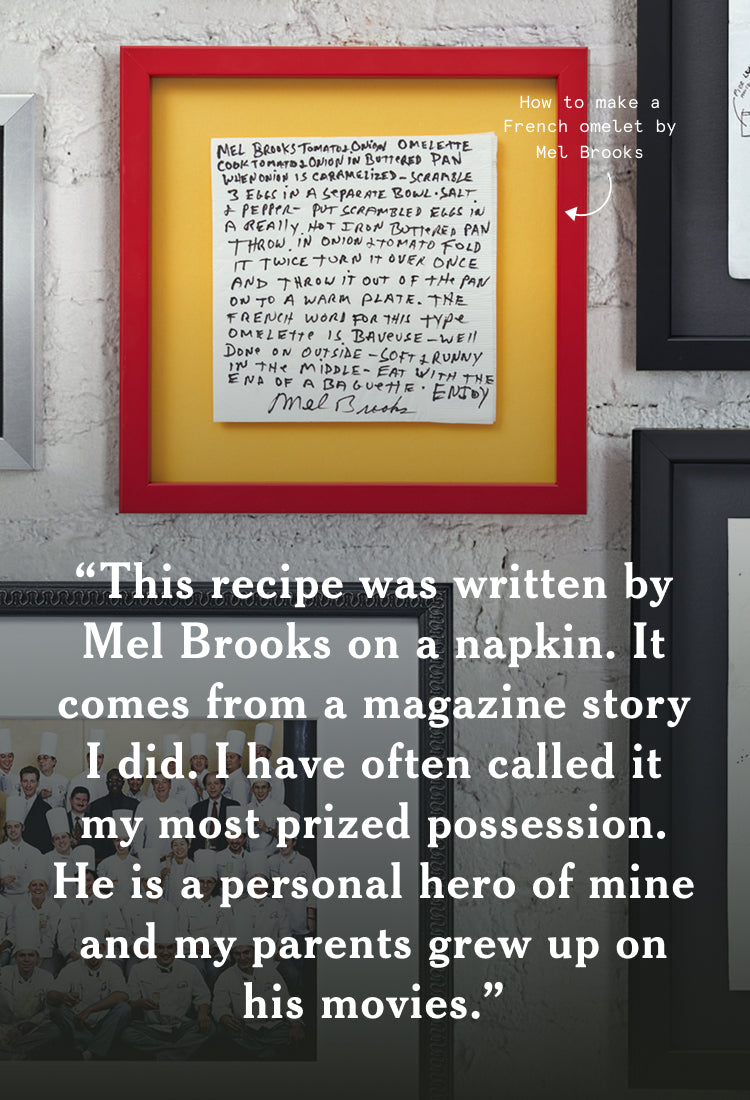 How to make a
French omelet by
Mel Brooks
MEL BROOKS TOMATO & ONION OMELETTE
COOK TOMATO & ONION IN BUTTERED PAN
WHEN ONION IS CARAMELIZED - SCRAMBLE
3 EGGS IN A SEPARATE BOWL · SALT
& PEPPER - PUT SCRAMBLED EGGS IN
A REALLY HOT IRON BUTTERED PAN
THROW IN ONION & TOMATO FOLD
IT TWICE TURN IT OVER ONCE
AND THROW IT OUT OF THE PAN
ON TO A WARM PLATE. THE
FRENCH WORD FOR THIS TYPE
OMELETTE IS BAVEUSE - WELL
DONE ON OUTSIDE - SOFT & RUNNY
IN THE MIDDLE - EAT WITH THE
END OF A BAGUETTE · ENJOY
Mel Brooks
“This recipe was written by
Mel Brooks on a napkin. It
comes from a magazine story
I did. I have often called it
my most prized possession.
He is a personal hero of mine
and my parents grew up on
his movies.”